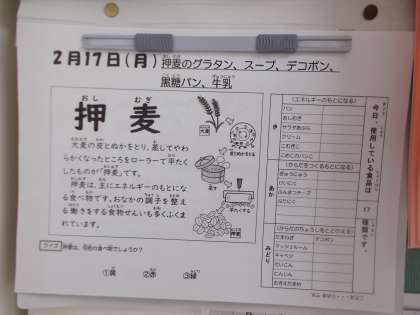 2月17日(月) 押麦のグラタン、スープ、デコポン、
黒糖パン、牛乳
押麦
おし むぎ
大麦の皮とぬかをとり、蒸してやわ
らかくなったところをローラーで平たく
したものが「押麦」です。
押麦は、主にエネルギーのもとにな
る食べ物です。おなかの調子を整え
る働きをする食物せんいも多くふくま
れています。
大麦
蒸す
平たくする
押麦
クイズ 押麦は、何色の食べ物でしょうか?
①黄 ②赤 ③緑
今日、使用している食品は
17
種類です。
き
(エネルギーのもとになる)
パン
おしむぎ
サラダあぶら
クリーム
こむぎこ
こめこのパンこ
あか
(からだをつくるもとになる)
ぎゅうにゅう
けいにく
みどり
(からだのちょうしをととのえる)
たまねぎ
デコポン
マッシュルーム
キャベツ
だいこん
にんじん